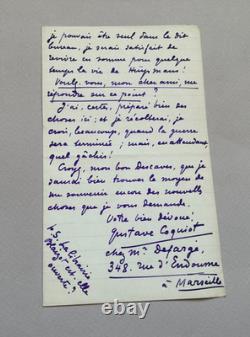 je pouvais être seul dans le dit
bureau, je serais satisfait de
revivre en somme pour quelque
temps la vie de Huysmans !
Voulez-vous, mon cher ami, me
répondre sur ce point ?
J'ai, certes, préparé bien des
choses ici ; et je récolterai, je
crois, beaucoup, quand la guerre
sera terminée ; mais, en attendant
quel gâchis !
Croyez, mon bon Descaves, que je
saurai bien trouver le moyen de
me souvenir encore des nouvelles
choses que je vous demande.
Votre bien dévoué :
Gustave Coquiot
chez Mr Defarge,
348. rue d'Endoume
à Marseille
P.S. La librairie
est-elle
ouverte ?